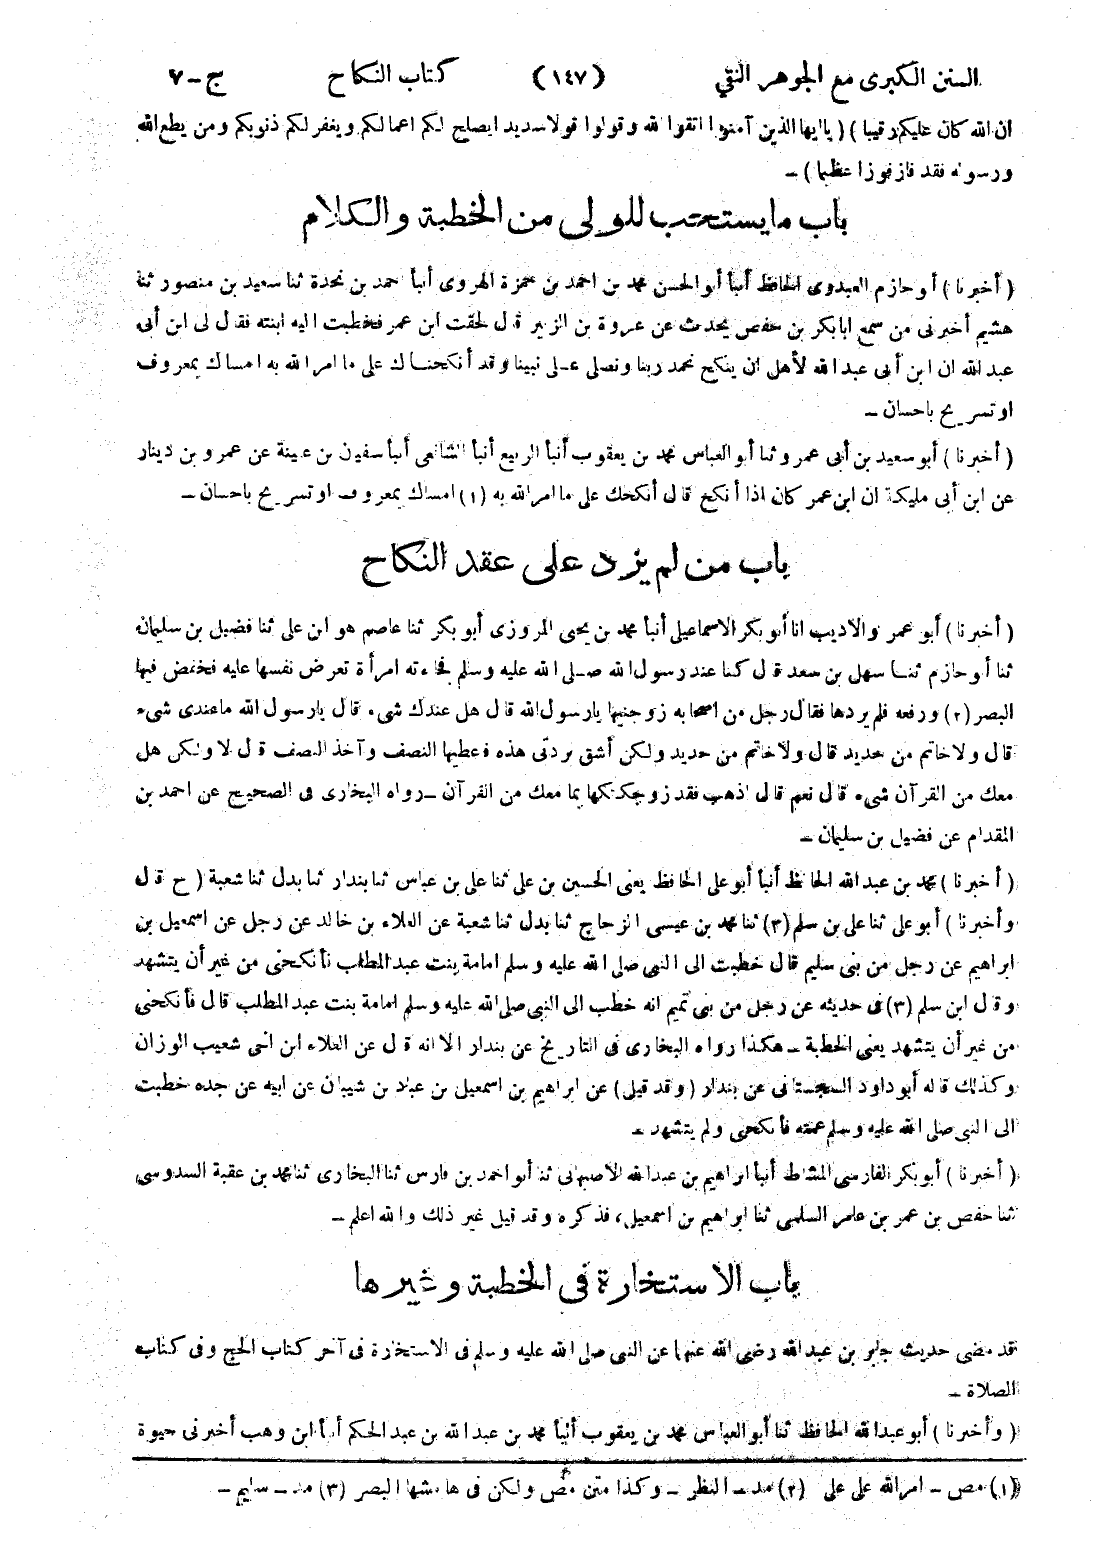 السنن الكبرى مع الجوهر النقي (١٤٧) كتاب النكاح ج - ٧
ان الله كان عليكم رقيبا ) ( يا ايها الذين آمنوا اتقوا الله وقولوا قولا سديدا يصلح لكم اعمالكم ويغفر لكم ذنوبكم ومن يطع الله
ورسوله فقد فاز فوزا عظيما ) -
باب ما يستحب للولى من الخطبة والكلام
( أخبرنا ) أبو حازم العبدوى الحافظ أنبأ أبو الحسن محمد بن احمد بن حمزة الهروى أنبأ احمد بن نجدة ثنا سعيد بن منصور ثنا
هشيم أخبرنى من سمع ابابكر بن حفص يحدث عن عروة بن الزبير قال لحقت ابن عمر فخطبت اليه ابنته فقال لى ابن أبى
عبد الله ان ابن أبى عبد الله لأهل ان ينكح نحمد ربنا ونصلى على نبينا وقد أنكحناك على ما امر الله به امساك بمعروف
او تسريح باحسان -
( أخبرنا ) أبو سعيد بن أبى عمرو ثنا أبو العباس محمد بن يعقوب أنبأ الربيع أنبأ الشافعى أنبأ سفين بن عيينة عن عمرو بن دينار
عن ابن أبى مليكة ان ابن عمر كان اذا أنكح قال أنكحك على ما امر الله به (١) امساك بمعروف او تسريح باحسان -
باب من لم يزد على عقد النكاح
( أخبرنا ) أبو عمرو الاديب انا أبو بكر الاسماعيلى أنبأ محمد بن يحيى المروزى أبو بكر ثنا عاصم هو ابن على ثنا فضيل بن سليمان
ثنا أبو حازم ثنا سهل بن سعد قال كنا عند رسول الله صلى الله عليه وسلم فجاءته امرأة تعرض نفسها عليه فخفض فيها
البصر (٢) ورفعه فلم يردها فقال رجل من اصحابه زوجنيها يا رسول الله قال هل عندك شىء قال يا رسول الله ما عندى شىء
قال ولا خاتم من حديد قال ولا خاتم من حديد ولكن أشق بردتى هذه فأعطيها النصف وآخذ النصف قال لا ولكن هل
معك من القرآن شىء قال نعم قال اذهب فقد زوجتكها بما معك من القرآن - رواه البخارى فى الصحيح عن احمد بن
المقدام عن فضيل بن سليمان -
( أخبرنا ) محمد بن عبد الله الحافظ أنبأ أبو على الحافظ يعنى الحسين بن على ثنا على بن عباس ثنا بندار ثنا بدل ثنا شعبة ( ح قال
وأخبرنا ) أبو على ثنا على بن سلم (٣) ثنا محمد بن عيسى الزجاج ثنا بدل ثنا شعبة عن العلاء بن خالد عن رجل عن اسمعيل بن
ابراهيم عن رجل من بنى سليم قال خطبت الى النبى صلى الله عليه وسلم امامة بنت عبد المطلب فأنكحنى من غير أن يتشهد
وقال ابن سلم (٣) فى حديثه عن رجل من بنى تميم انه خطب الى النبى صلى الله عليه وسلم امامة بنت عبد المطلب قال فأنكحنى
من غير أن يتشهد يعنى الخطبة - هكذا رواه البخارى فى التاريخ عن بندار الا انه قال عن العلاء ابن اخى شعيب الوزان
وكذلك قاله أبو داود السجستانى عن بندار ( وقد قيل ) عن ابراهيم بن اسمعيل بن عباد بن شيبان عن ابيه عن جده خطبت
الى النبى صلى الله عليه وسلم عمته فأنكحنى ولم يتشهد -
( أخبرنا ) أبو بكر الفارسى المشاط أنبأ ابراهيم بن عبد الله الاصبهانى ثنا أبو احمد بن فارس ثنا البخارى ثنا محمد بن عقبة السدوسى
ثنا حفص بن عمر بن عامر السلمى ثنا ابراهيم بن اسمعيل، فذكره وقد قيل غير ذلك والله اعلم -
باب الاستخارة فى الخطبة وغيرها
قد مضى حديث جابر بن عبد الله رضى الله عنهما عن النبى صلى الله عليه وسلم فى الاستخارة فى آخر كتاب الحج وفى كتاب
الصلاة -
( وأخبرنا ) أبو عبد الله الحافظ ثنا أبو العباس محمد بن يعقوب أنبأ محمد بن عبد الله بن عبد الحكم أنبأ ابن وهب أخبرنى حيوة
(١) مص - امر الله على على (٢) مد - النظر - وكذا متن مص ولكن فى هامشها البصر (٣) مد - سليم -